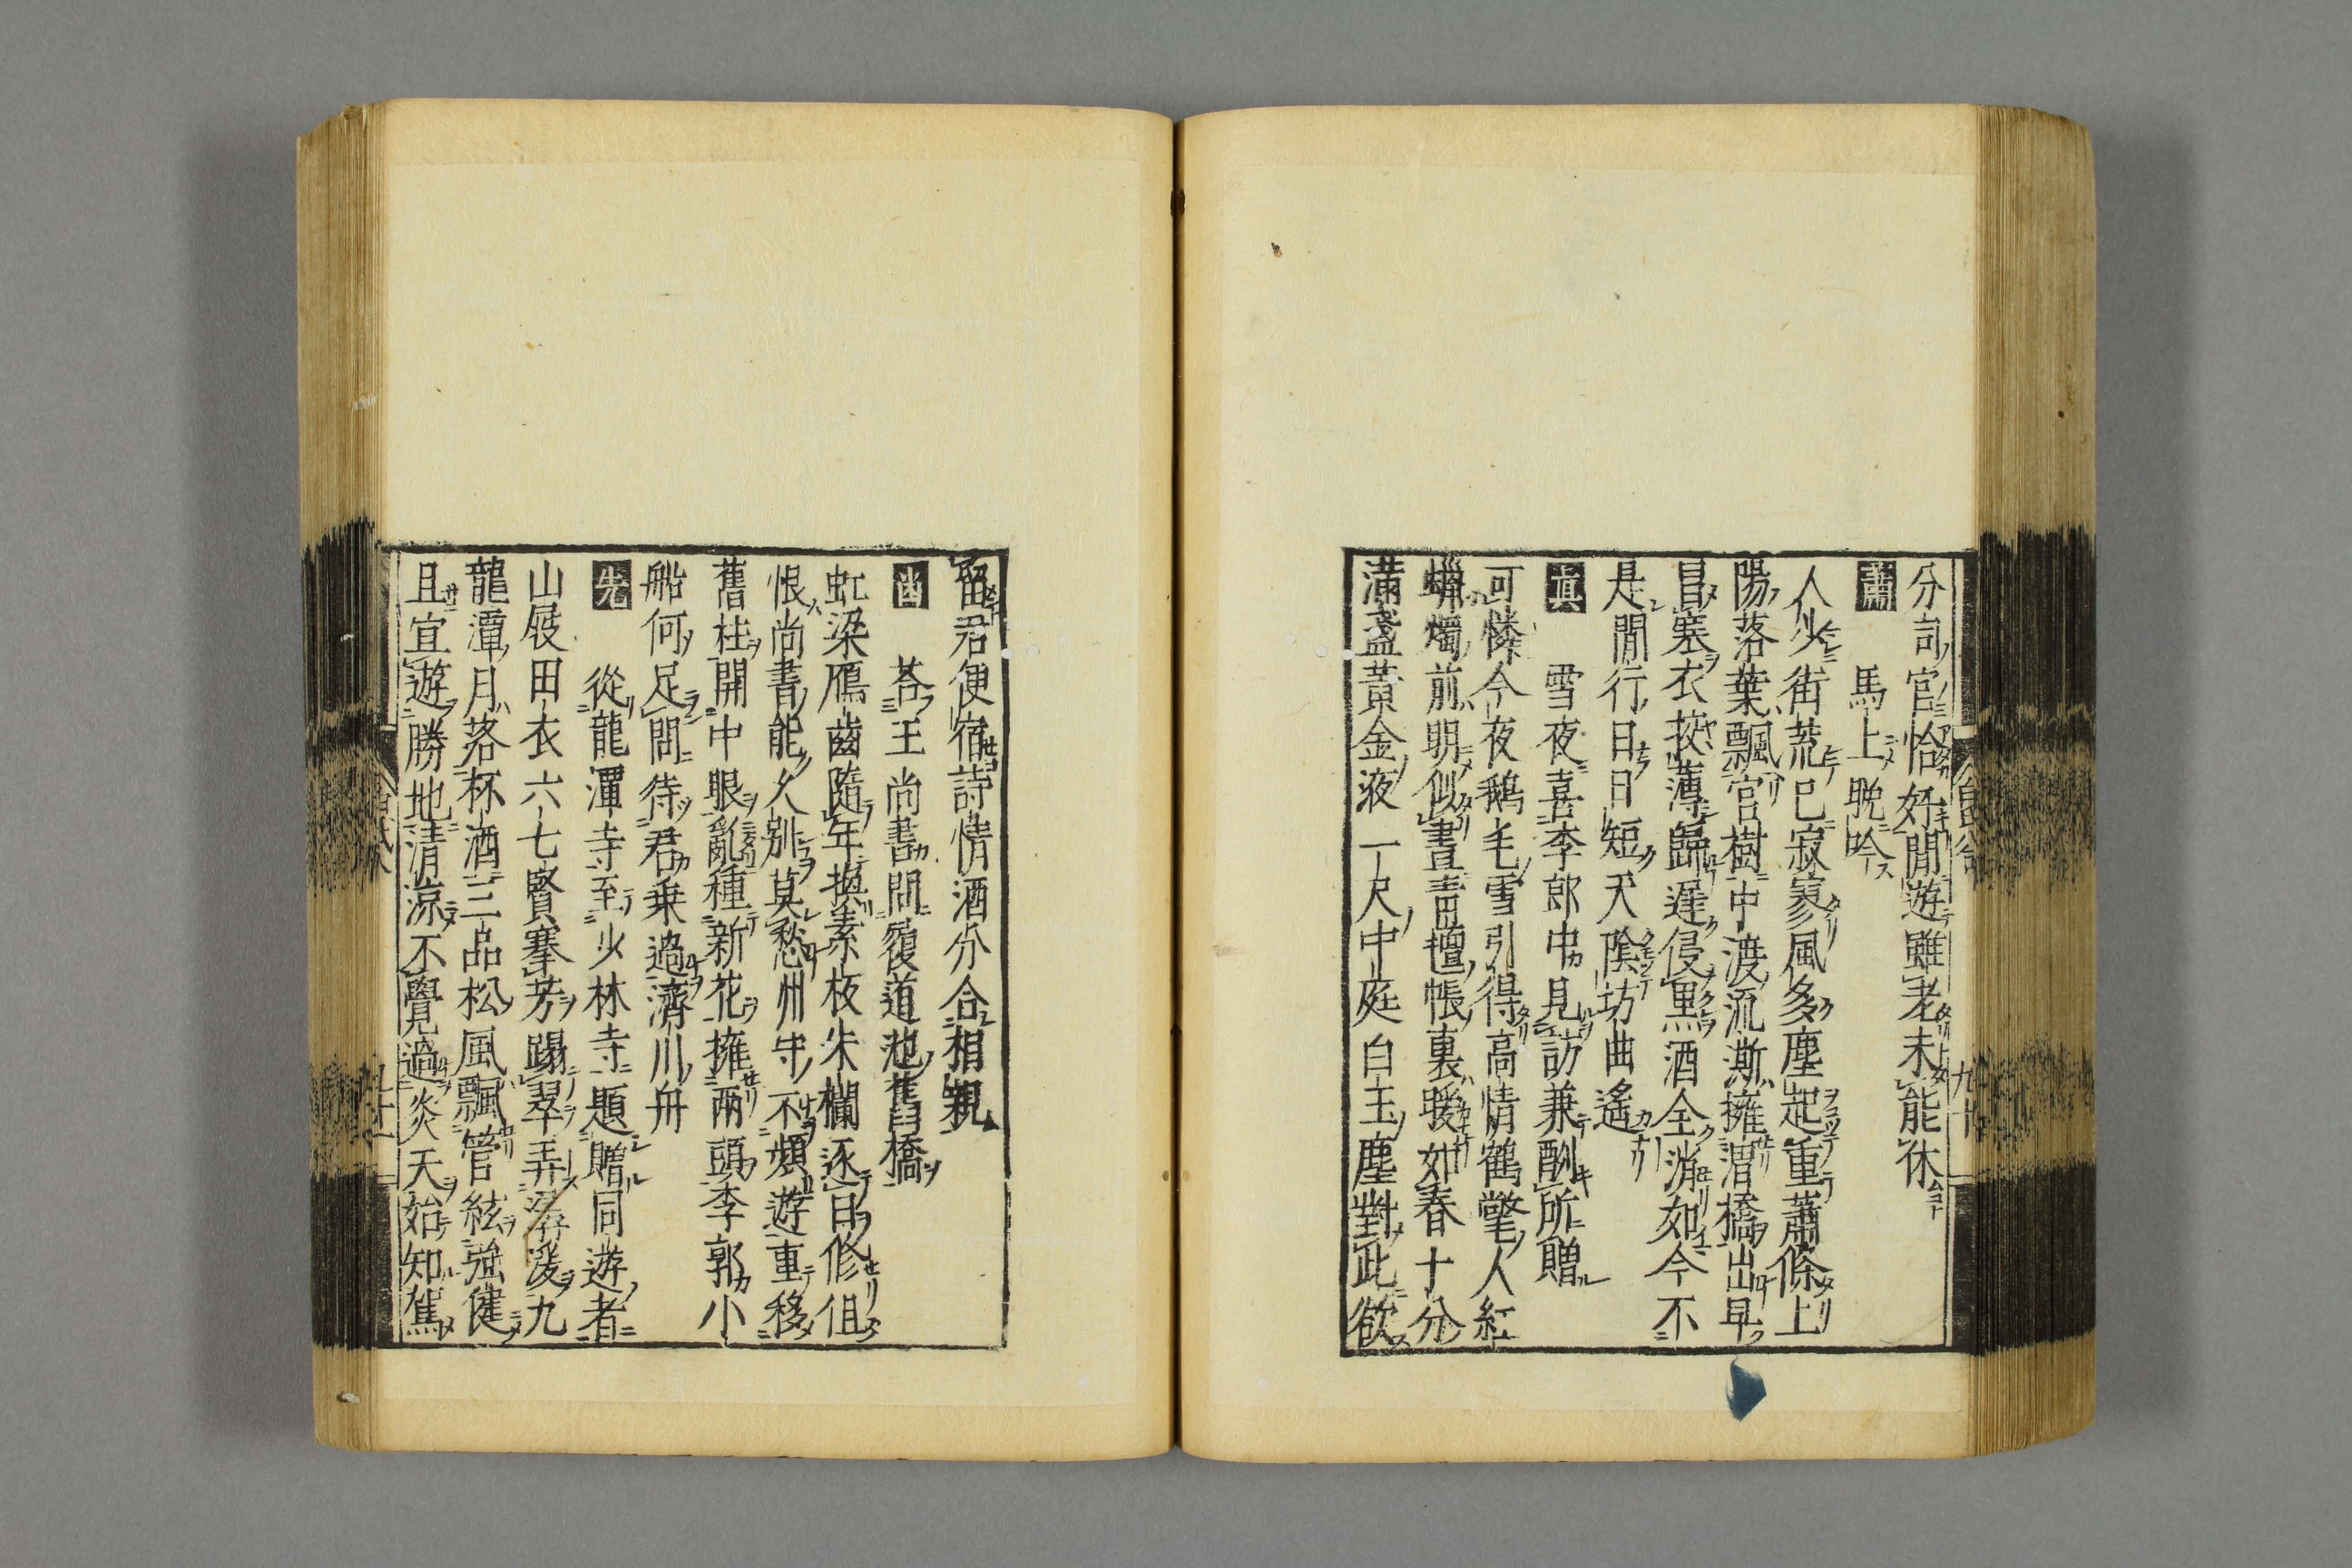 分司官恰好閒遊雖老未能休
蕭 馬上晩吟
人少街荒已寂寥風多塵起重蕭條上
陽落葉飄宮樹中渡流澌擁渭橋出早
冒寒衣挍薄歸遲侵黒酒全消如今不
是閒行日日短天陰坊曲遙
真 雪夜喜李郎中見訪兼酬所贈
可憐今夜鵝毛雪引得高情鶴氅人紅
蠟燭前明似晝青氊帳裏暖如春十分
滿盞黄金液一尺中庭白玉塵對此欲
留君便宿詩情酒分合相親
荅王尚書問履道池舊橋
虹梁鴈齒隨年換素板朱欄逐日修但
恨尚書能久別莫愁州守不頻遊重移
舊柱開中眼亂種新花擁兩頭李郭小
船何足問待君乗過濟川舟
先 從龍潭寺至少林寺題贈同遊者
山屐田衣六七賢搴芳蹋翠弄潺湲九
龍潭月落杯酒三品松風飄管絃強健
且宜遊勝地清涼不覺過炎天始知駕